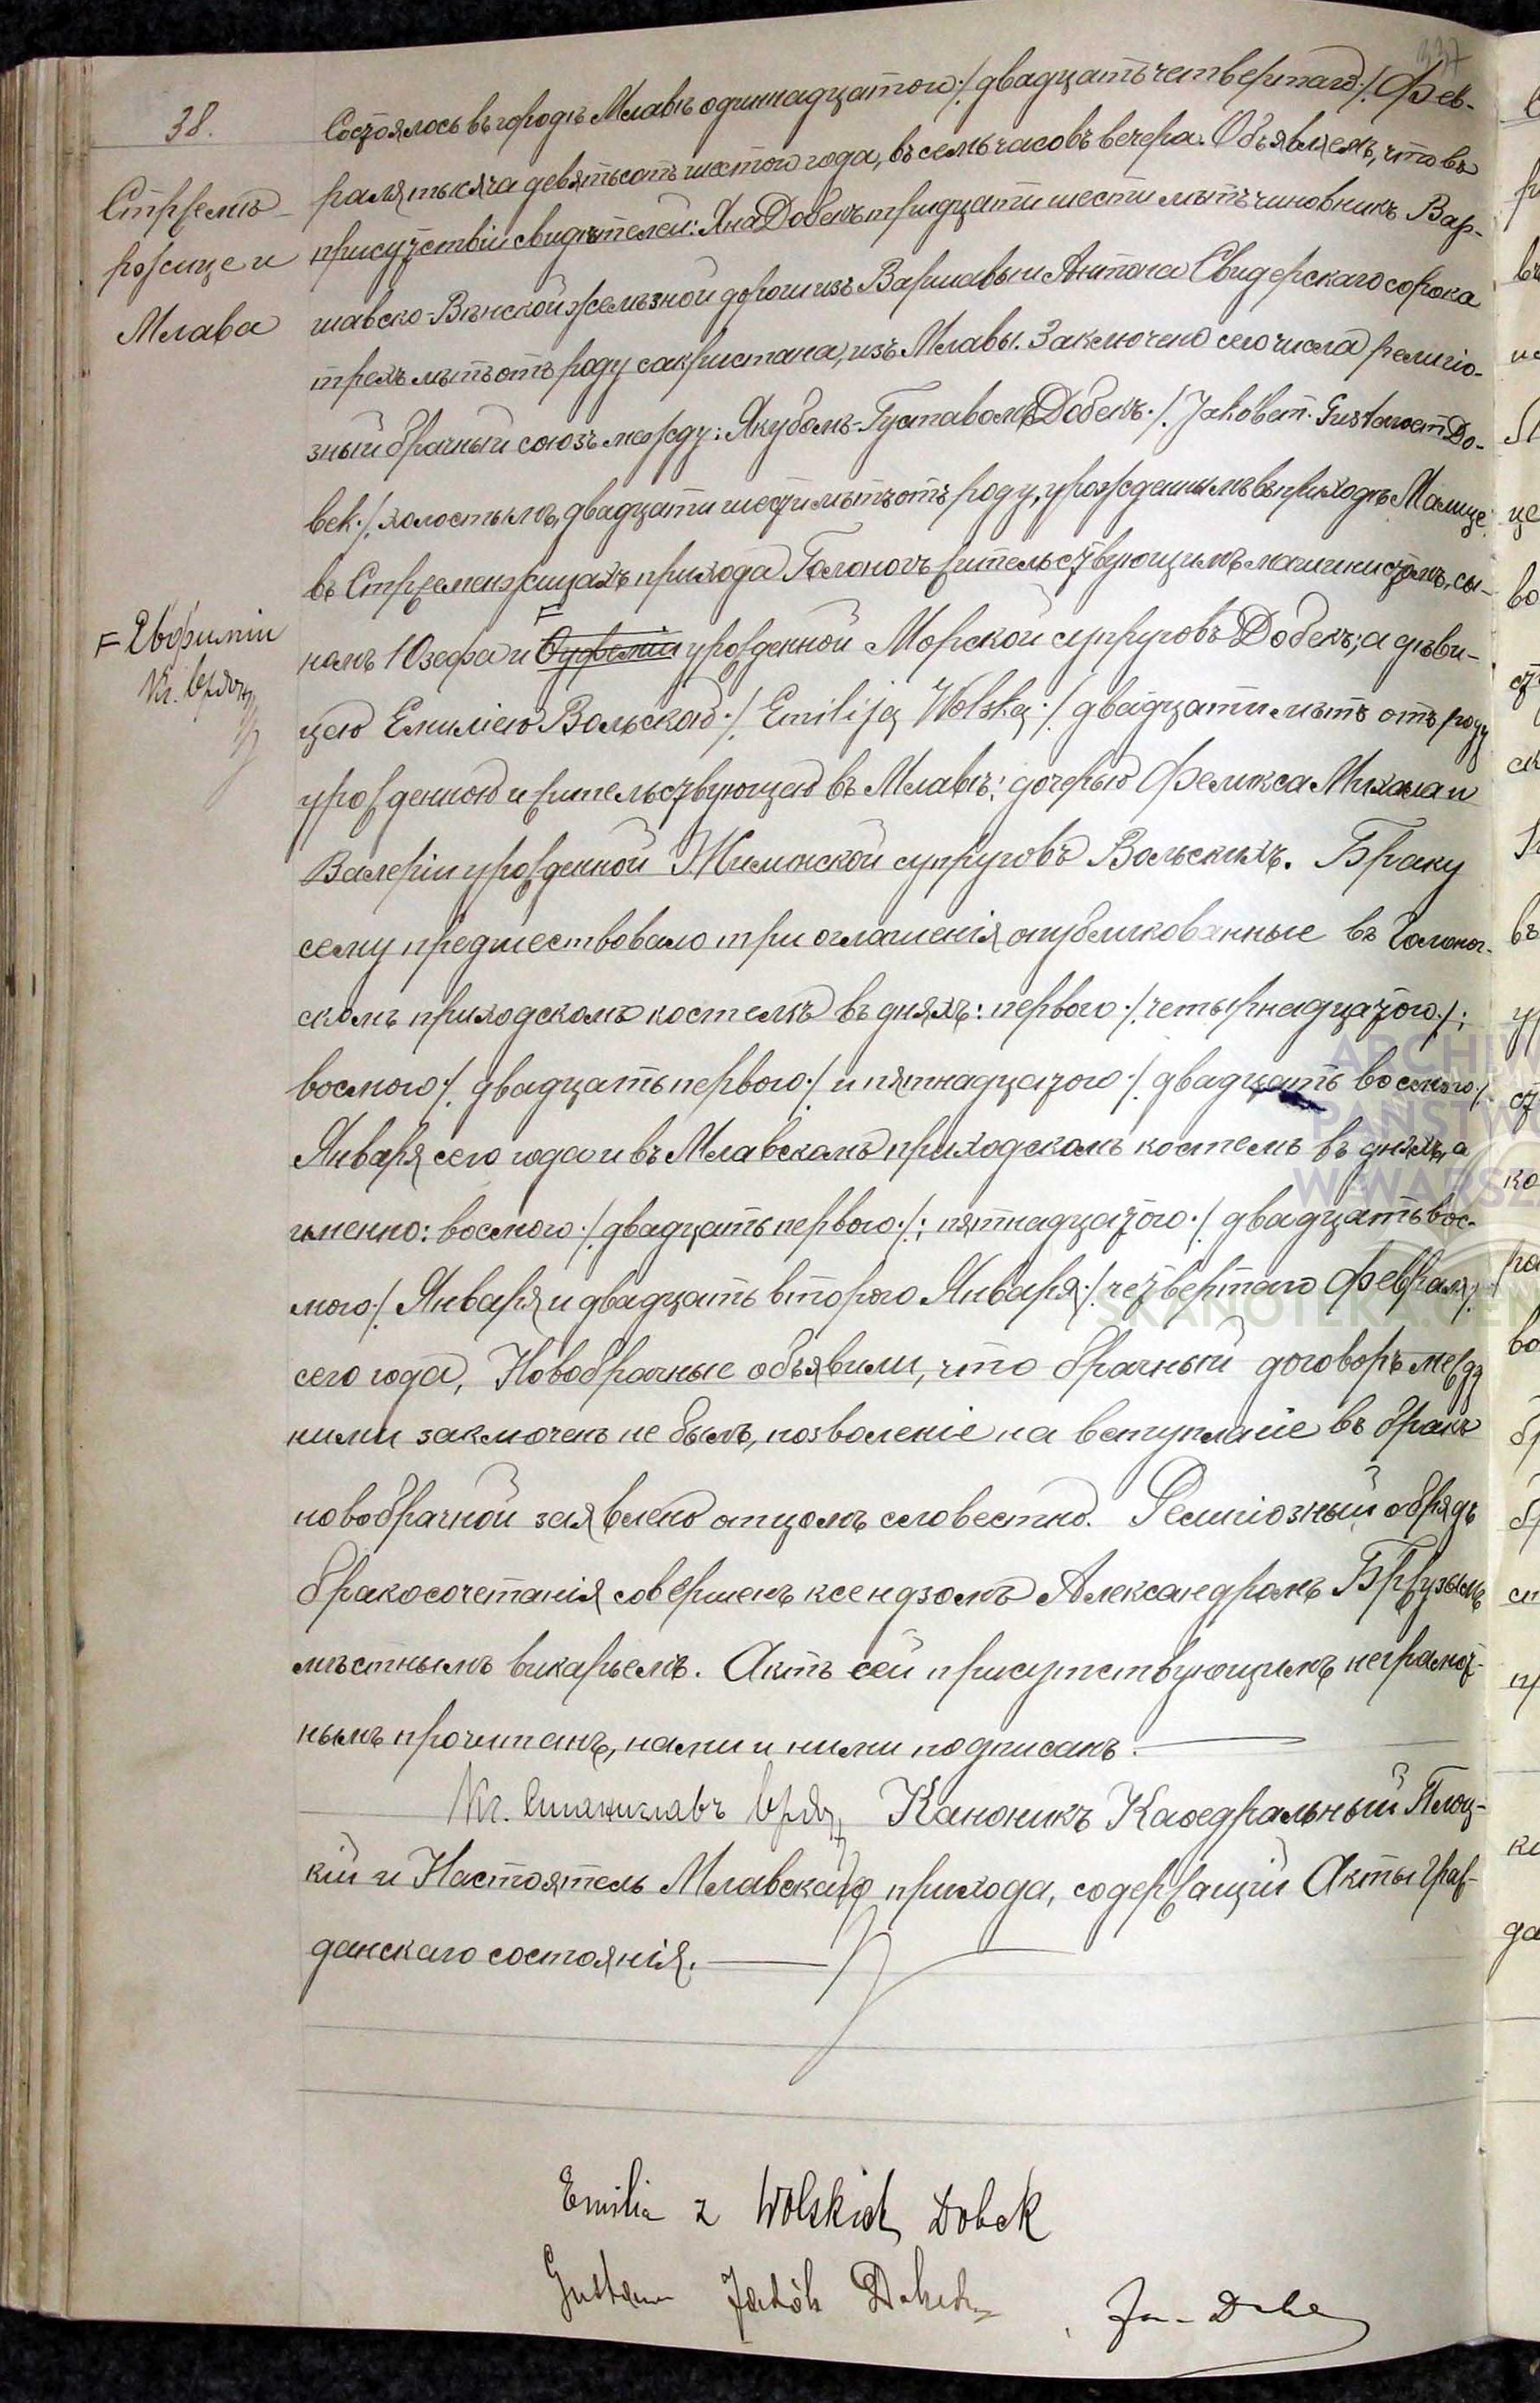 337
38.
Стрѣеми-
рожице и
Млава
Состоялось въ городѣ Млавѣ одинадцатого ./. двадцать четвертаго ./. Фев-
раля тысяча девятьсотъ шестого года, въ семь часовъ вечера. Объявляемъ, что въ
присутствіи свидѣтелей: Яна Добекъ тридцати шести лѣтъ чиновникъ Вар-
шавско-Вѣнской желѣзной дороги изъ Варшавы и Антона Свидерскаго сорока
трехъ лѣтъ отъ роду сакристана, изъ Млавы. Заключено сего числа религіо-
зный брачный союзъ между: Якубомъ-Густавомъ Добекъ ./. Jakobem-Gustawem Do-
bek ./. холостымъ, двадцати шести лѣтъ отъ роду, урожденнымъ въ приходѣ Малице
въ Стрземежицахъ прихода Голоногъ жительствующимъ машинистомъ, сы-
номъ Юзефа и Еуфеміи урожденной Морской супруговъ Добекъ; а дѣви-
F Евфиміи
Кс.
цею Емиліею Вольскою ./. Emiliją Wolską ./. двадцати лѣтъ отъ роду
урожденною и жительствующею въ Млавѣ; дочерью Феликса Михала и
Валеріи урожденной Жилинской супруговъ Вольскихъ. Браку
сему предшествовало три оглашенія опубликованные въ Голоног-
скомъ приходскомъ костелѣ въ дняхъ: первого ./. четырнадцатого ./.;
восмого ./. двадцать первого ./. и пятнадцатого ./. двадцать восмого ./.
Января сего года и въ Млавскомъ приходскомъ костелѣ въ дняхъ, а
именно: восмого ./. двадцать первого ./.; пятнадцатого ./. двадцать вос-
мого ./. Января и двадцать второго Января ./. четвертаго Февраля ./.
сего года, Новобрачные объявили, что брачный договоръ между
ними заключенъ не былъ, позволеніе на вступленіе въ бракъ
новобрачной заявлено отцомъ словестно. Религіозный обрядъ
бракосочетанія совершенъ ксендзомъ Александромъ Брузымъ
мѣстнымъ викарьемъ. Актъ сей присутствующимъ неграмот-
нымъ прочитанъ, нами и ними подписанъ.
Кс. Станиславъ Каноникъ Каѳедральный Плоц-
кій и Настоятель Млавскаго прихода, содержащій Акты Граж-
данскаго состоянія.
Emilia z Wolskich Dobek
Gustaw Jakób Dobek
Jan Dobek
ARCHIW
PAŃSTWO
W WARSZ
SKANOTEKA.GEN